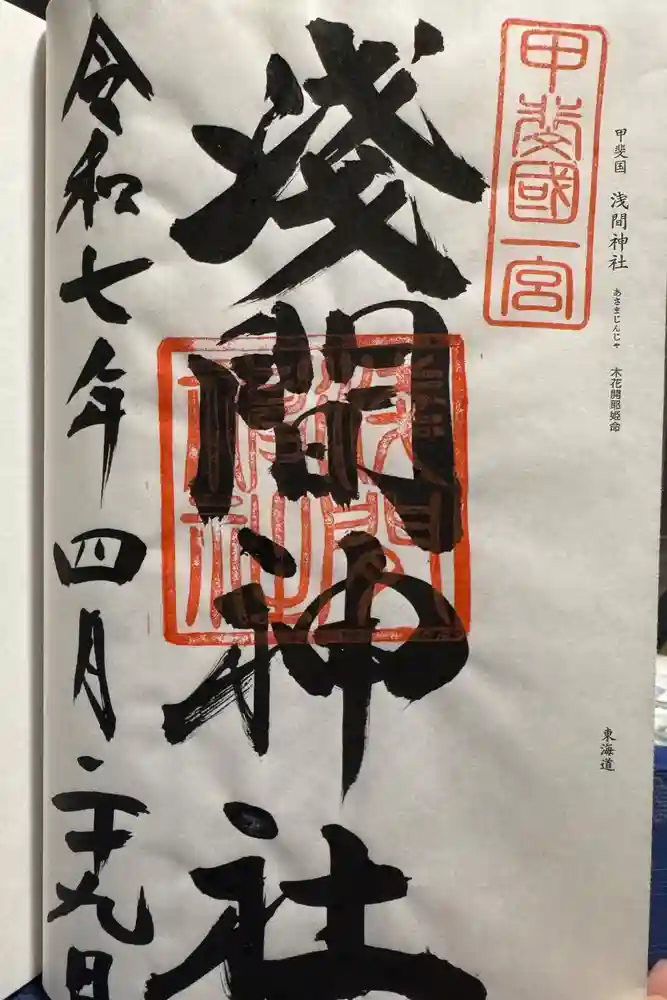 甲斐国 浅間神社 あさまじんじゃ 木花開耶姫命
東海道
甲斐國一宮
淺間神社
淺間神社
令和七年四月二十九日